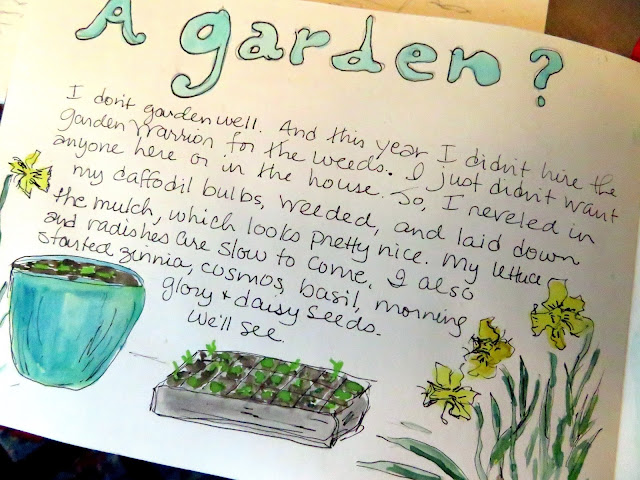 A garden?
I don't garden well. And this year I didn't hire the
garden warrior for the weeds. I just didn't want
anyone here or in the house. So, I reveled in
my daffodil bulbs, weeded, and laid down
the mulch, which looks pretty nice. My lettuce
and radishes are slow to come. I also
started zinnia, cosmos, basil, morning
glory & daisy seeds.
We'll see.